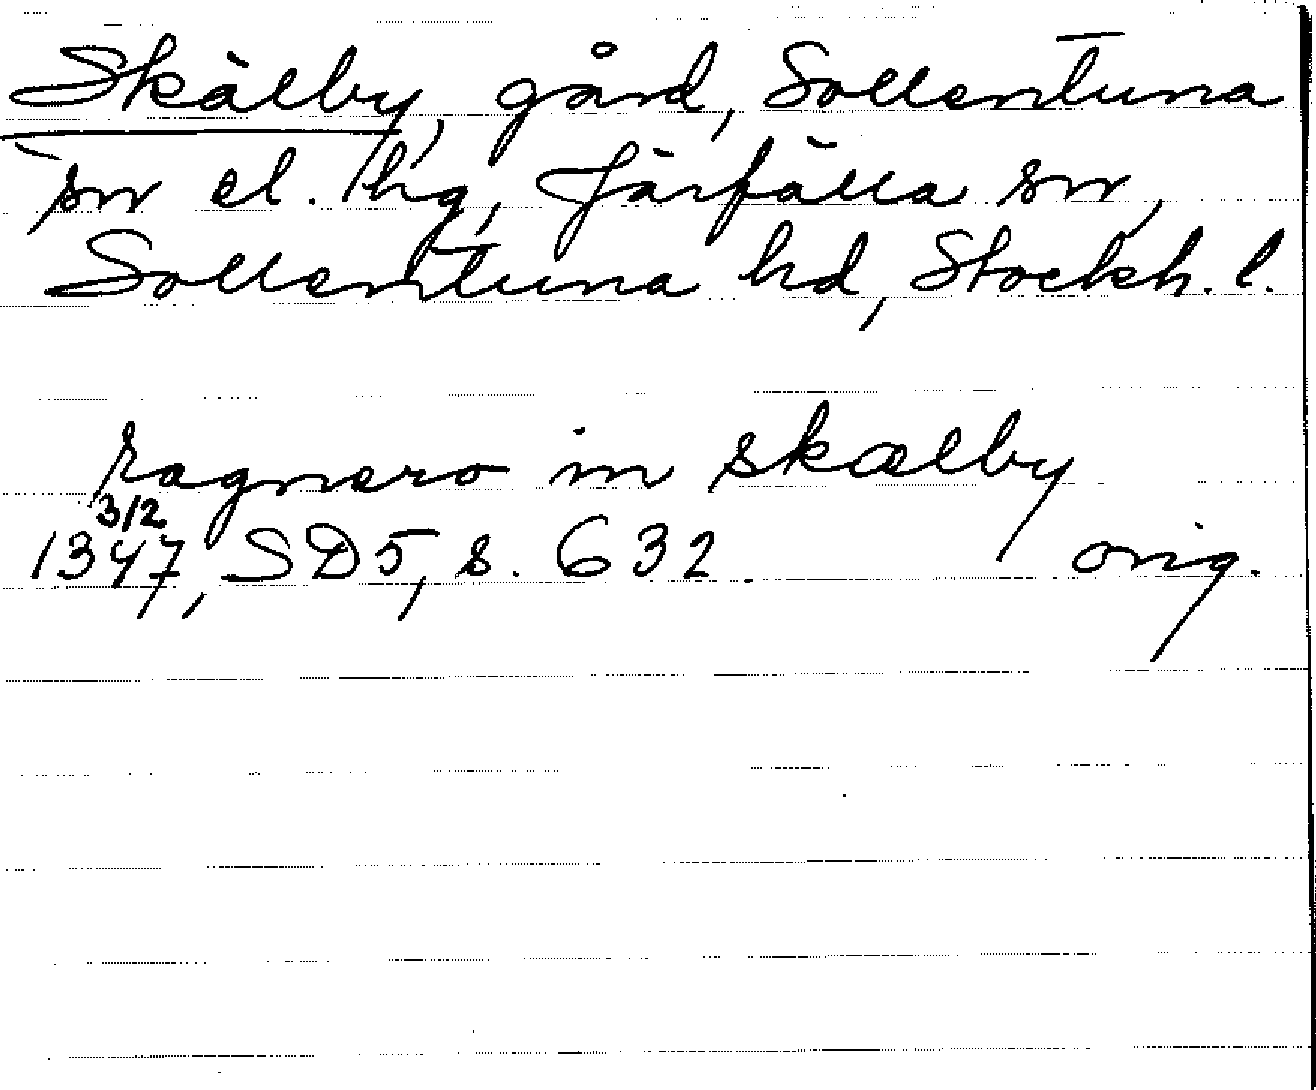 Skälby, gård, Sollentuna
sn el. hg, Järfälla sn,
Sollentuna hd, Stockh. l.
ragnero in skælby
3/2
1347, SD5, s. 632. orig.